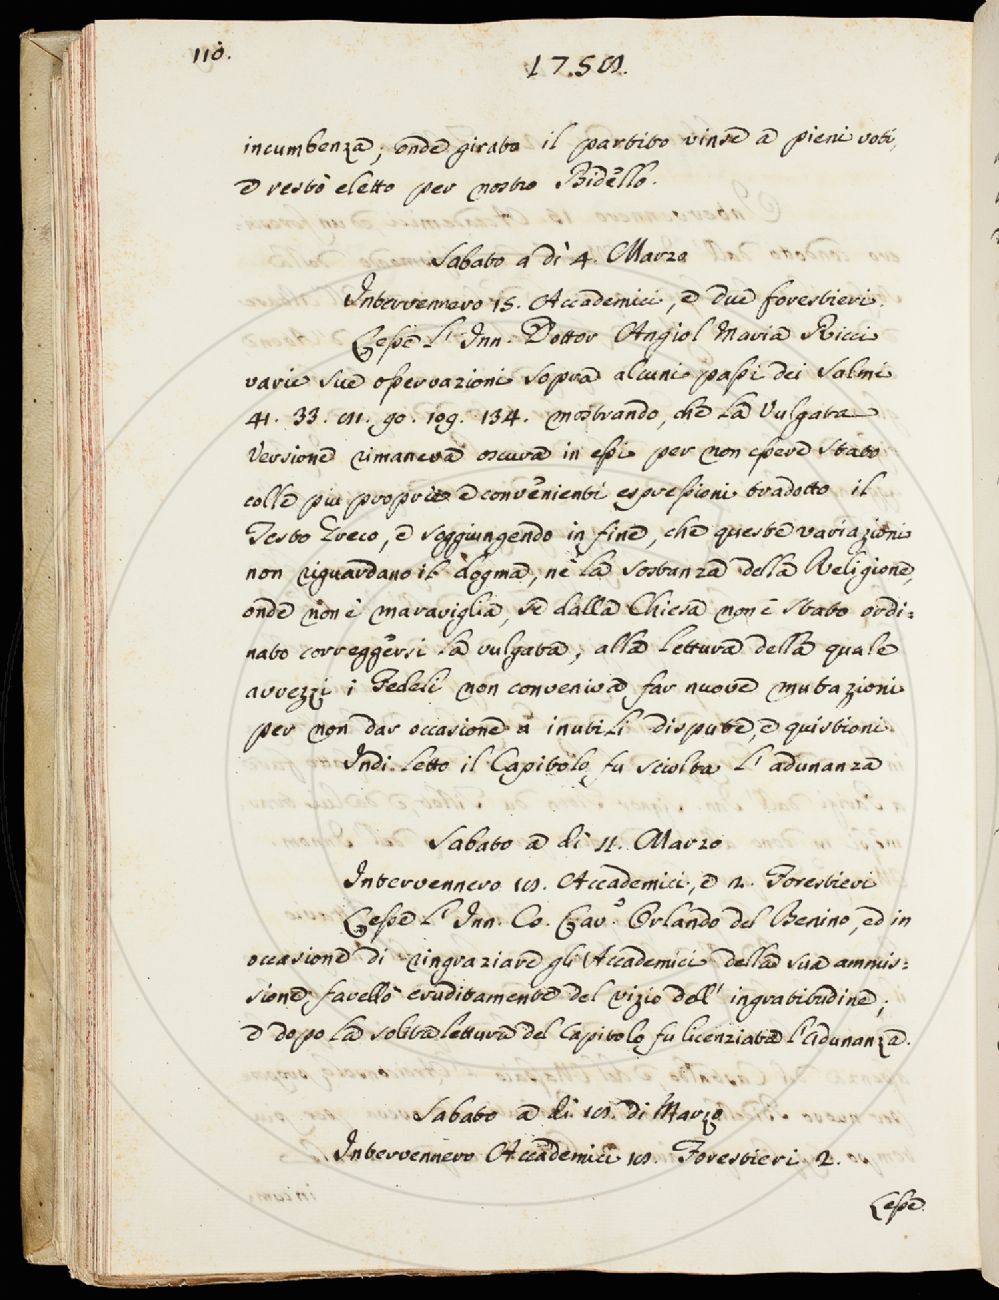 110.
1758.
incumbenza; onde girato il partito vinse a pieni voti,
e restò eletto per nostro Bidello.
Sabato a dì 4. Marzo
Intervennero 15. Accademici, e due forestieri.
Lesse l' Inn. Dottor Angiol Maria Ricci
varie sue osservazioni sopra alcuni passi dei Salmi
41. 33. 81. 90. 109. 134. mostrando, che la Vulgata
Versione rimaneva oscura in essi per non essere stato
colle più proprie e convenienti espressioni tradotto il
Testo Greco, e soggiungendo in fine, che queste variazioni
non riguardano il dogma, nè la sostanza della Religione,
onde non è maraviglia, se dalla Chiesa non è stato ordi=
nato correggersi la vulgata; alla lettura della quale
avvezzi i Fedeli non conveniva far nuove mutazioni
per non dar occasione a inutili dispute, e quistioni.
Indi letto il Capitolo fu sciolta l' adunanza
Sabato a di 11. Marzo
Intervennero 18. Accademici, e 2. Forestieri
Lesse l' Inn. Co. Cav.o Orlando del Benino, ed in
occasione di ringraziare gli Accademici della sua ammis=
sione, favellò eruditamente del vizio dell' ingratitudine;
e dopo la solita lettura del Capitolo fu licenziata l'Adunanza.
Sabato a di 18. di Marzo
Intervennero Accademici 18. Forestieri 2.
Lesse